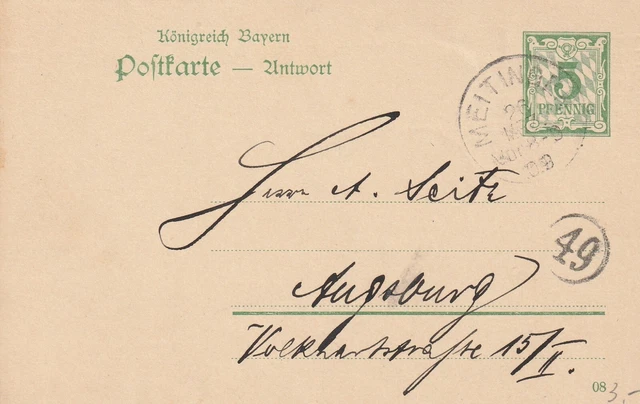 Königreich Bayern
Postkarte — Antwort
5
PFENNIG
MEITING
Herrn A. Seitz
49
Augsburg
Volkhartstraße 15/II.
08
3,-